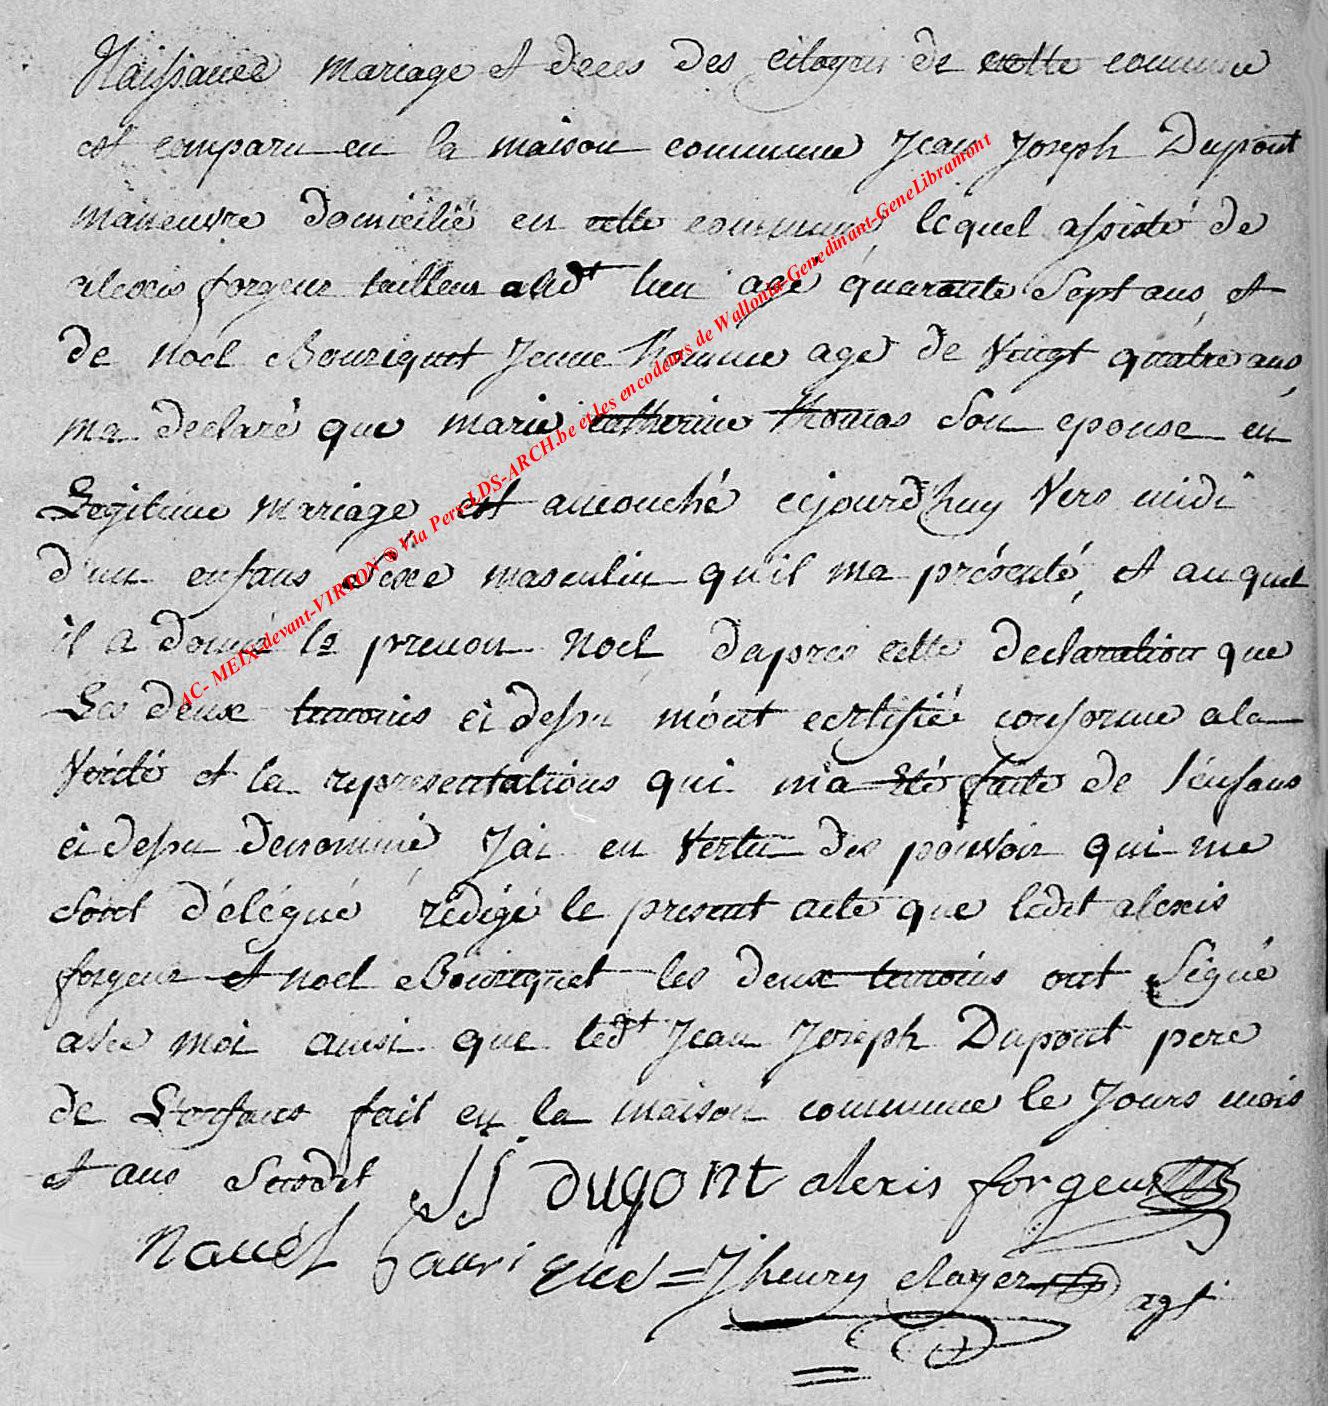 Naissance mariage et deces des citoyens de cette commune
est comparu en la maison commune Jean Joseph Dupont
maneuvre domicilié en cette commune, lequel assisté de
alexis forgeur tailleur aud.t lieu agé quarante Sept ans, et
de noel Bouriquet Jeune homme agé de Vingt quatre ans,
ma declaré que marie catherine thomas Son epouse en
Legitime mariage est accouché cejourd'huy Vers midi
d'un enfans Sexe masculin qu'il ma présenté, et auquel
il a donné le prenom noel, d'apres cette declaration que
Les deux temoins ci dessu m'ont certifié conforme a la
Verité et la representations qui m'a Eté faite de l'enfans
ci dessu denommé, J'ai en Vertu des pouvoir qui me
Sont délégué rédigé le present acte que ledit alexis
forgeur et noel Bouriquet les deux temoins ont Signé
avec moi ainsi que led.t Jean Joseph Dupont pere
de L'enfans fait en la maison commune le Jours mois
et ans Susdit JJ dupont alexis forgeur
nauel bauri quet = J henry clayer agt
AC- MEIX-devant-VIRTON © Via Pers LDS-ARCH.be et les encodeurs de Wallonia-Genedinant-GeneLibramont